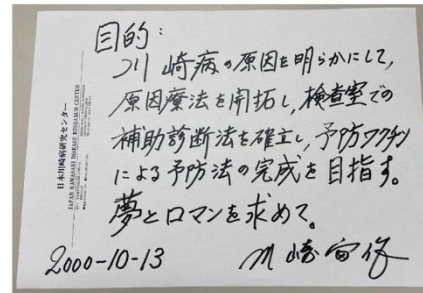 目的:
川崎病の原因を明らかにして,
原因療法を開拓し,検査室での
補助診断法を確立し,予防ワクチン
による予防法の完成を目指す。
夢とロマンを求めて。
2000-10-13
川崎富作
日本川崎病研究センター
JAPAN KAWASAKI DISEASE RESEARCH CENTER